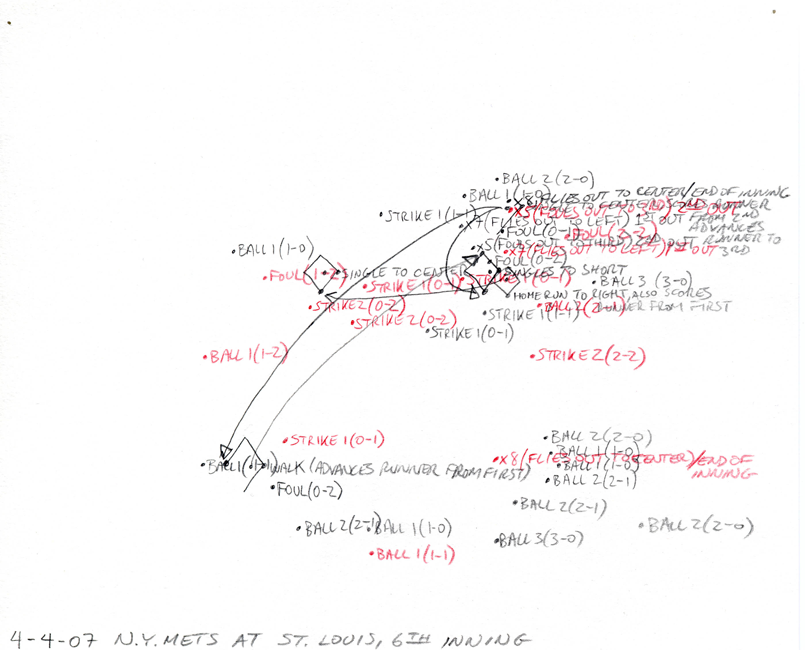 •BALL 2 (2-0)
•BALL 1 (1-0)
X8(FLIES OUT TO CENTER/END OF INNING
•STRIKE 1 (1-1)
X7(FLIES OUT TO LEFT) 1ST OUT FROM 2ND
ADVANCES
•FOUL (0-1)
FOUL(2-2)
X5(FOULS OUT TO THIRD) 2ND OUT RUNNER TO
3RD
•X7(FLIES OUT TO LEFT) 1ST OUT
•BALL 1 (1-0)
•FOUL (0-2)
•FOUL (1-2)
•SINGLE TO CENTER
SINGLES TO SHORT
•STRIKE 1 (0-1)
STRIKE 1 (0-1)
•BALL 3 (3-0)
•HOME RUN TO RIGHT, ALSO SCORES
RUNNER FROM FIRST
•STRIKE 2 (0-2)
•BALL 2 (2-1)
•STRIKE 1 (1-1)
•STRIKE 2 (0-2)
•STRIKE 1 (0-1)
•BALL 1 (1-2)
•STRIKE 2 (2-2)
•STRIKE 1 (0-1)
•BALL 2 (2-0)
•BALL 1 (1-0)
•X8(FLIES OUT TO CENTER)/END OF
INNING
•BALL 1 (1-1)
WALK (ADVANCES RUNNER FROM FIRST)
•BALL 1 (1-0)
•BALL 2 (2-1)
•FOUL (0-2)
•BALL 2 (2-1)
•BALL 2 (2-1)
•BALL 1 (1-0)
•BALL 2 (2-0)
•BALL 3 (3-0)
•BALL 1 (1-1)
4-4-07 N.Y. METS AT ST. LOUIS, 6TH INNING